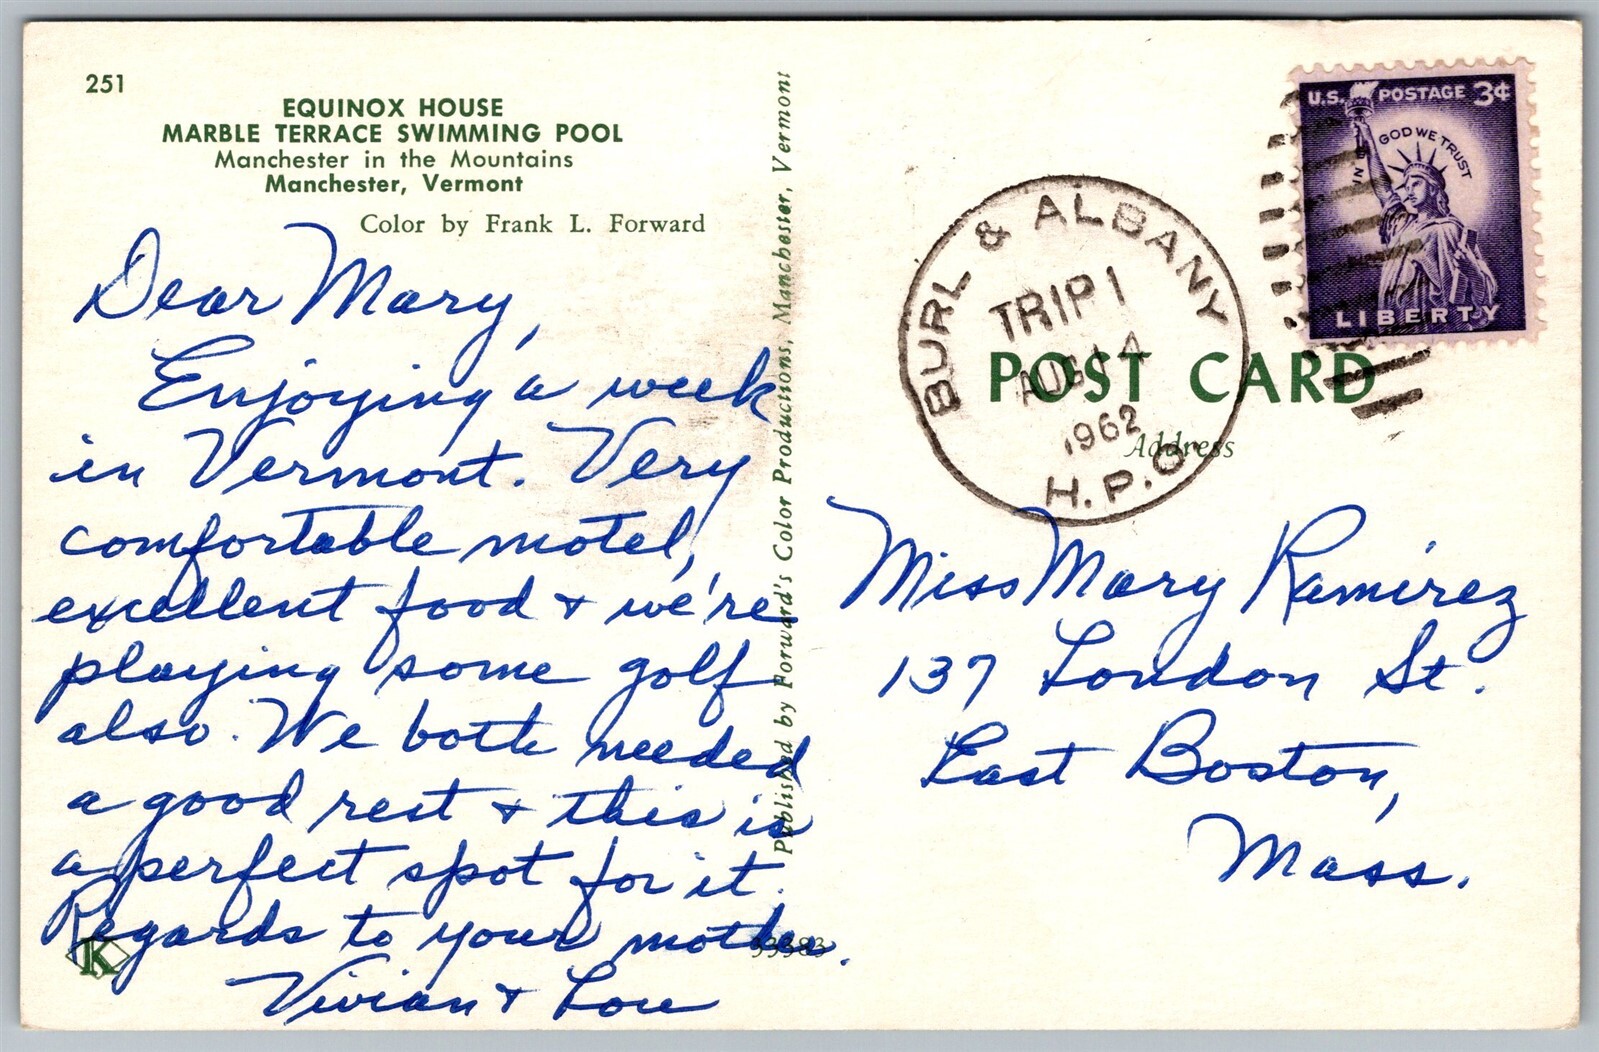 251
EQUINOX HOUSE
MARBLE TERRACE SWIMMING POOL
Manchester in the Mountains
Manchester, Vermont
Color by Frank L. Forward
Dear Mary,
Enjoying a week
in Vermont. Very
comfortable motel,
excellent food + we're
playing some golf
also. We both needed
a good rest + this is
a perfect spot for it.
Regards to your mother.
Vivian + Lou
K
Published by Forward's Color Productions, Manchester, Vermont
U.S. POSTAGE 3¢
IN GOD WE TRUST
LIBERTY
BURL & ALBANY
TRIP 1
AUG 14
1962
H.P.O.
POST CARD
Address
Miss Mary Ramirez
137 London St.
East Boston,
Mass.